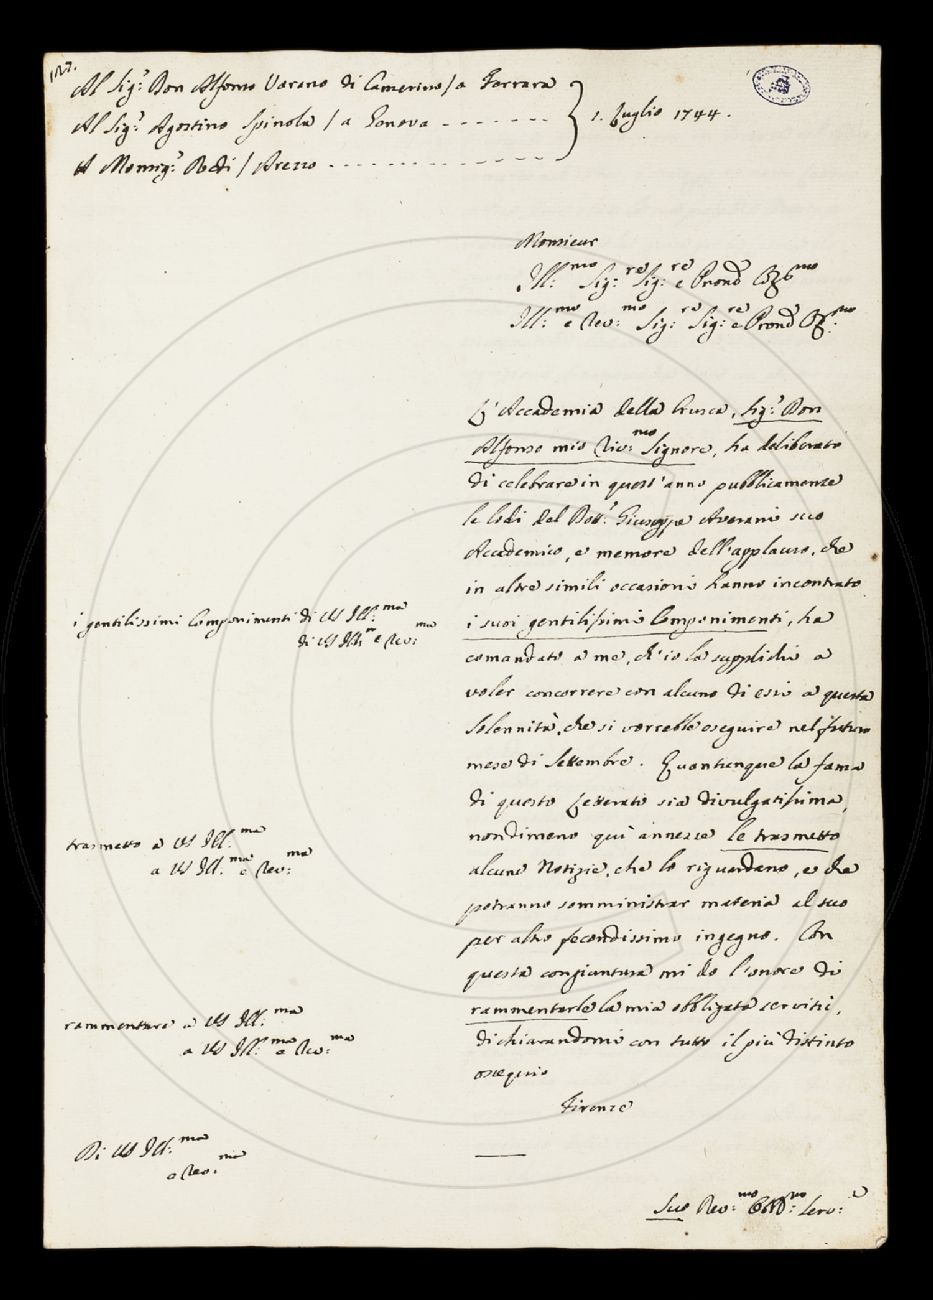 127.
Al Sig.r Don Alfonso Varano di Camerino / a Ferrara
Al Sig.r Agostino Spinola / a Genova
A Monsig.r Redi / Arezzo
1. Luglio 1744.
Monsieur
Ill:mo Sig:re Sig:re e Pron
Ill:mo e Rev:mo Sig:re Sig:re e Pron
L'Accademia della Crusca, Sig:r Don
Alfonso mio Riv:mo Signore, ha deliberato
di celebrare in quest'anno pubblicamente
le lodi del Dott:r Giuseppe Averani suo
Accademico, e memore dell'applauso, che
in altre simili occasioni hanno incontrato
i suoi gentilissimi Componimenti, ha
i gentilissimi Componimenti di VS Ill:ma
di VS Ill:m e Rev:ma
comandato a me, ch'io la supplichi a
voler concorrere con alcuno di essi a questa
Solennità, che si vorrebbe eseguire nel futuro
mese di Settembre. Quantunque la fama
di questo Letterato sia divulgatissima,
nondimeno qui annesse le trasmetto
trasmetto a VS Ill:ma
a VS Ill:ma e Rev:ma
alcune Notizie, che lo riguardano, e che
potranno somministrar materia al suo
per altro fecondissimo ingegno. Con
questa congiuntura mi do l'onore di
rammentarle la mia obbligata servitù,
rammentare a VS Ill:ma
a VS Ill:ma e Rev:ma
dichiarandomi con tutto il più distinto
ossequio
Firenze
Di VS Ill:ma
e Rev:ma
Suo Dev:mo Serv:e